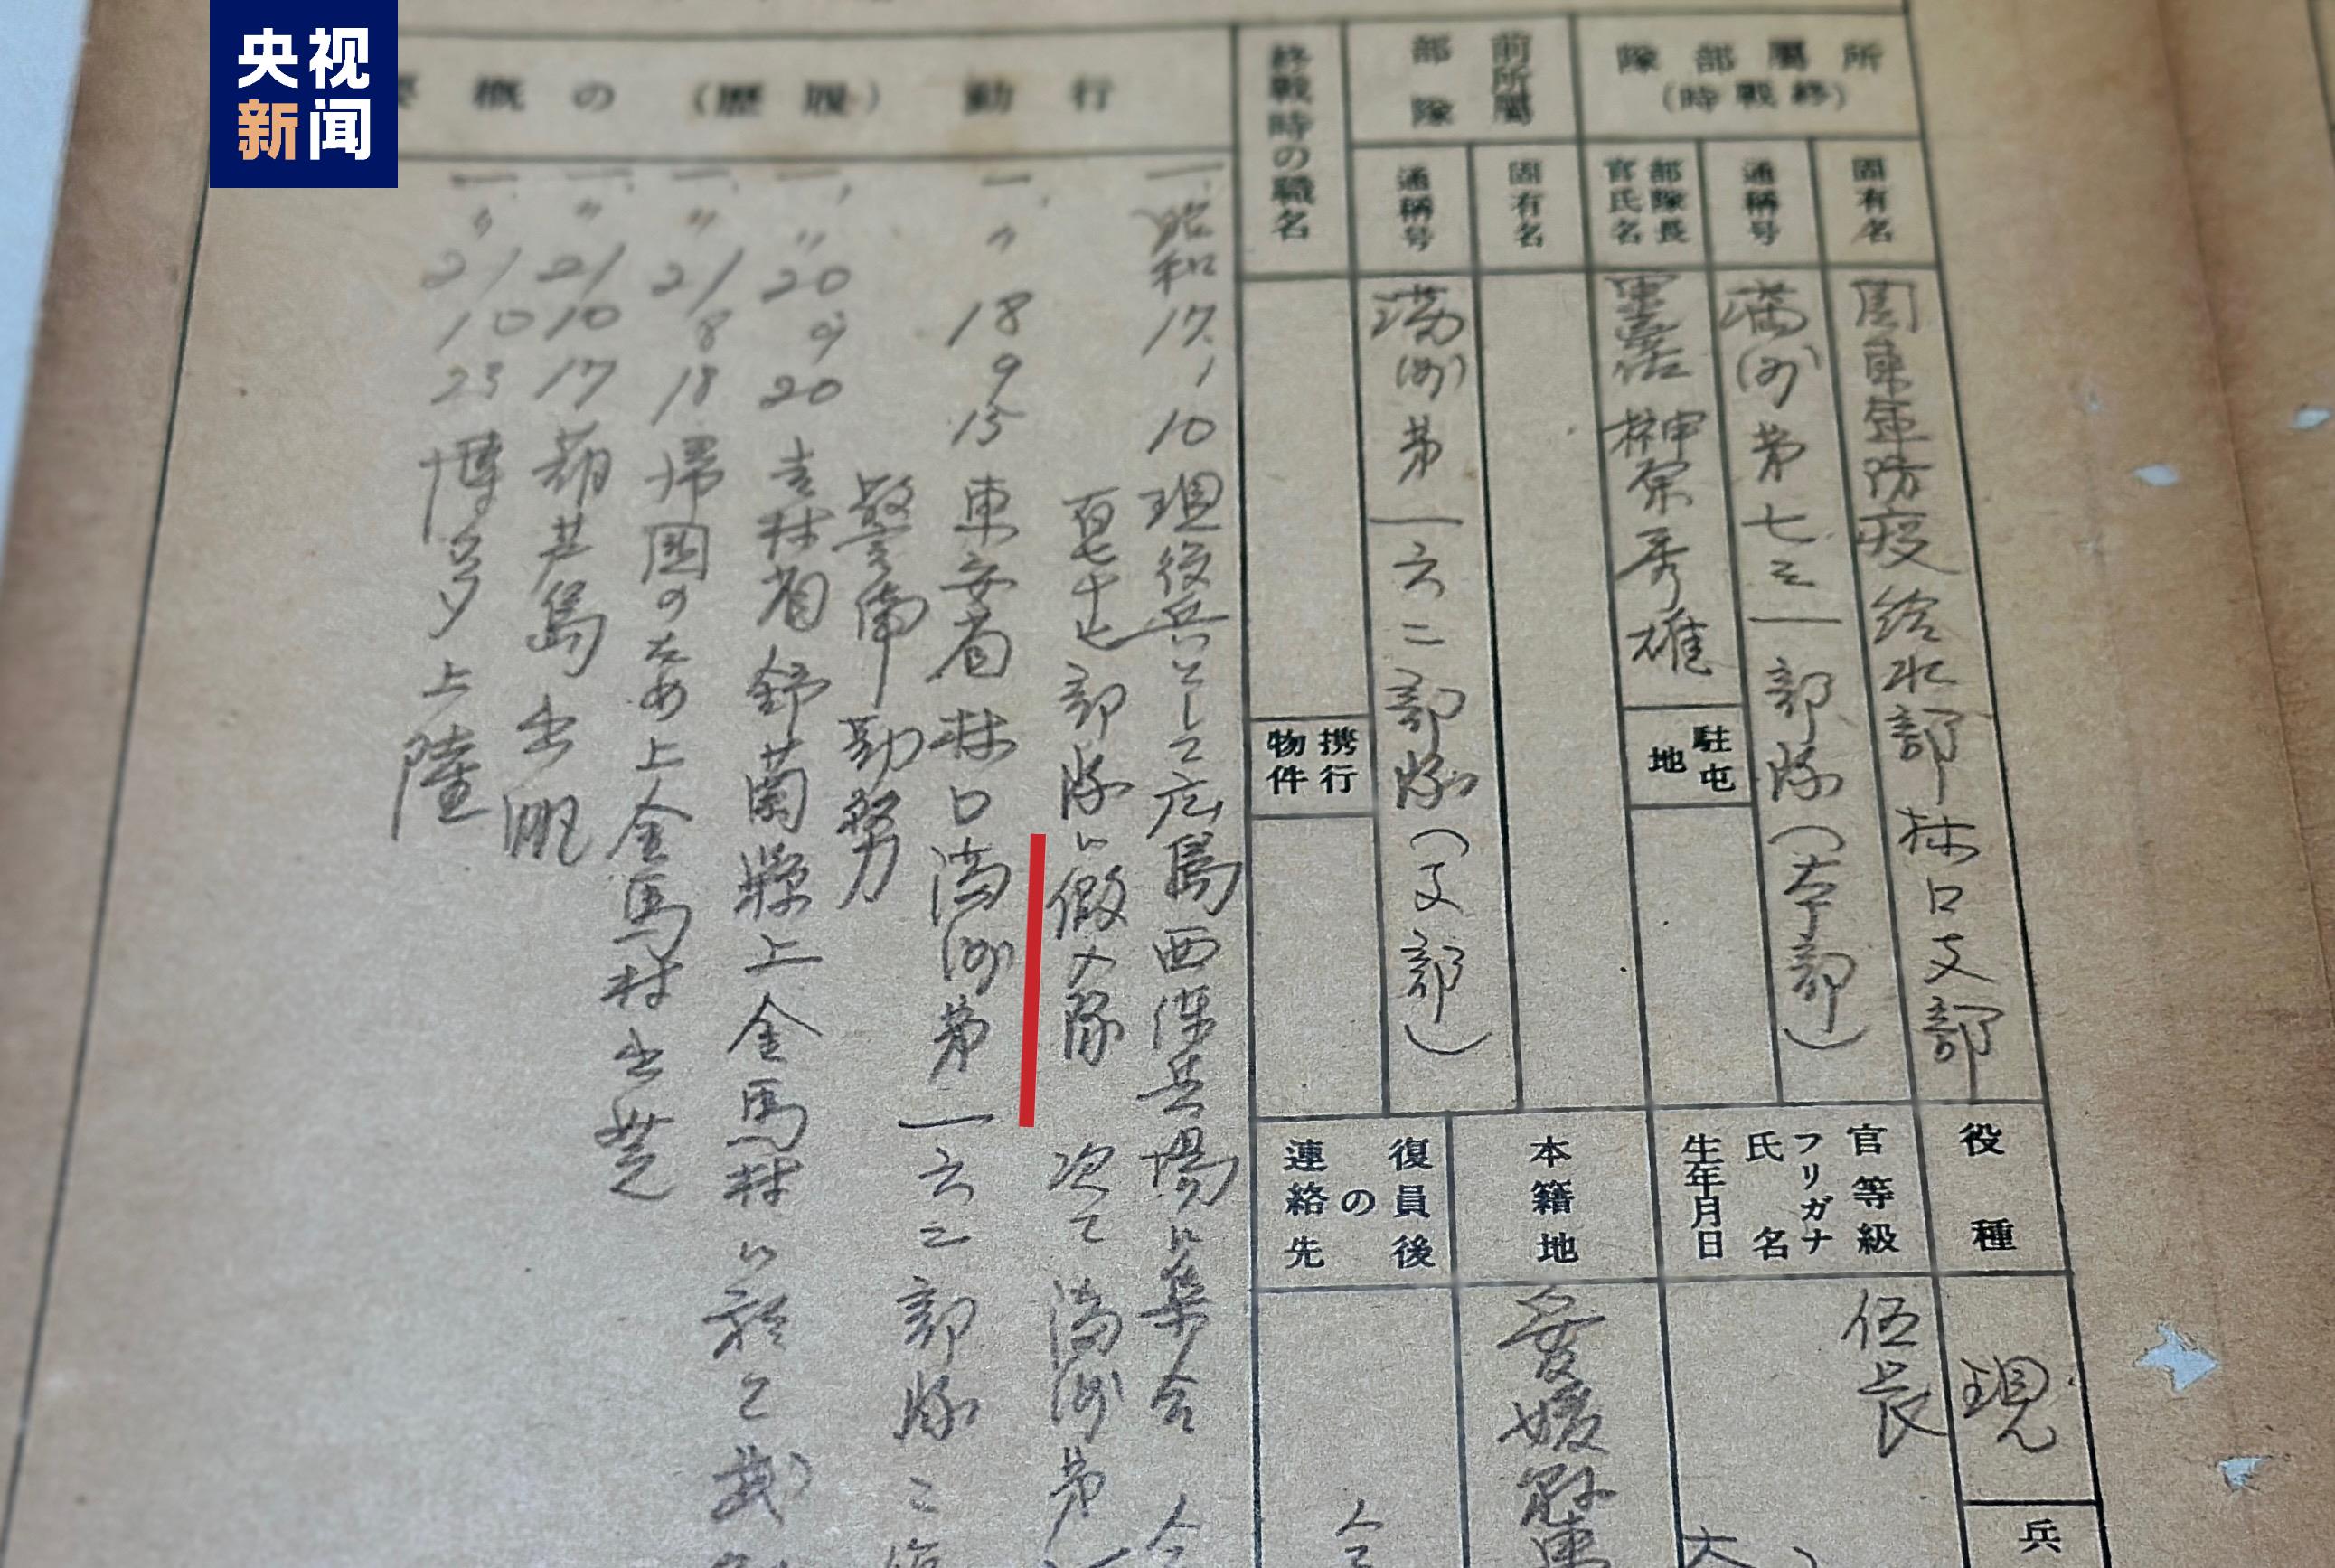 央视
新闻
所屬部隊
(終戰時)
固有名
関東軍防疫給水部林口支部
通稱号
満洲第七三一部隊(本部)
部隊長
官氏名
軍医 榊原秀雄
駐屯地
前所屬
部隊
固有名
通稱号
満洲第一六二部隊(支部)
終戰時の職名
携行
物件
役種
現
兵
官等級
フリガナ
氏名
生年月日
伍長
本籍地
愛媛縣
復員後
の
連絡先
行動(履歴)の概要
一、昭和17.1.10 現役兵として広島西練兵場に集合
百七十七部隊に仮入隊 次で満洲第
一、〃 18 9 15 東安省林口満洲第一六二部隊ニ
警備勤務
一、〃 20 9 20 吉林省舒蘭縣上金馬村に於て武
一、〃 21 8 18 帰国のため上金馬村出発
一、〃 21 10 17 葫芦島出帆
一、〃 21 10 23 博多上陸